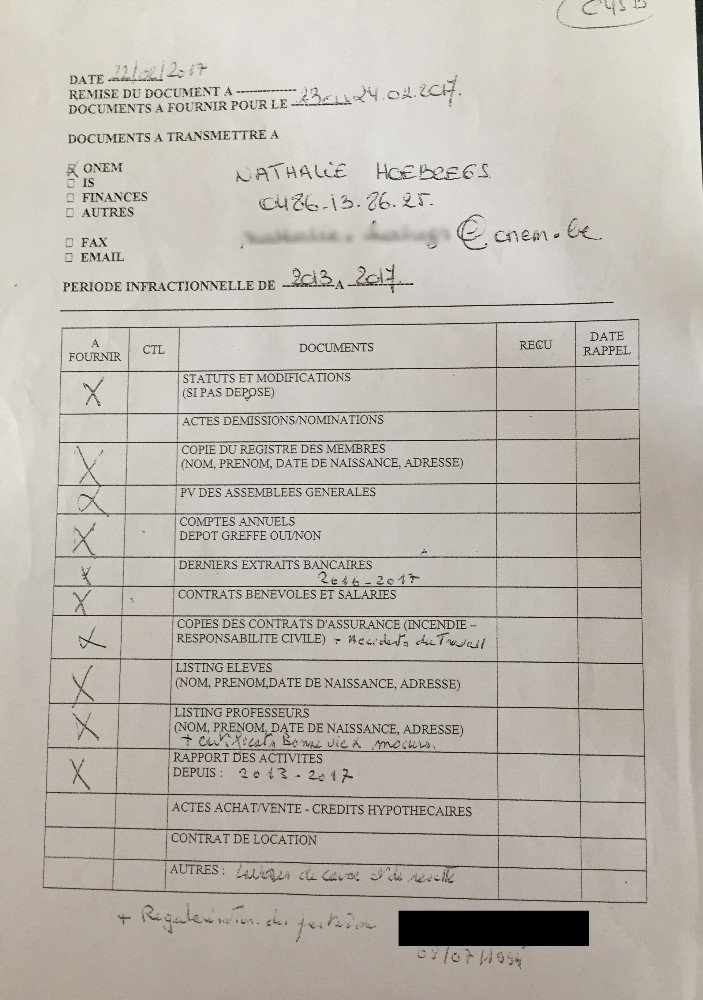 C45B
DATE 22/02/2017
REMISE DU DOCUMENT A
DOCUMENTS A FOURNIR POUR LE 23 ou 24.02.2017.
DOCUMENTS A TRANSMETTRE A
☒ ONEM
NATHALIE HOEBREGS
☐ IS
☐ FINANCES
0486.13.86.25.
☐ AUTRES
@onem.be
☐ FAX
☐ EMAIL
PERIODE INFRACTIONNELLE DE 2013 A 2017.
A FOURNIR CTL DOCUMENTS RECU DATE RAPPEL
X STATUTS ET MODIFICATIONS
(SI PAS DEPOSE)
ACTES DEMISSIONS/NOMINATIONS
X COPIE DU REGISTRE DES MEMBRES
(NOM, PRENOM, DATE DE NAISSANCE, ADRESSE)
X PV DES ASSEMBLEES GENERALES
X COMPTES ANNUELS
DEPOT GREFFE OUI/NON
X DERNIERS EXTRAITS BANCAIRES
2016-2017
X CONTRATS BENEVOLES ET SALARIES
X COPIES DES CONTRATS D'ASSURANCE (INCENDIE –
RESPONSABILITE CIVILE) + Accidents du Travail
X LISTING ELEVES
(NOM, PRENOM,DATE DE NAISSANCE, ADRESSE)
X LISTING PROFESSEURS
(NOM, PRENOM, DATE DE NAISSANCE, ADRESSE)
+ certificats Bonne vie & moeurs.
X RAPPORT DES ACTIVITES
DEPUIS : 2013-2017
ACTES ACHAT/VENTE - CREDITS HYPOTHECAIRES
CONTRAT DE LOCATION
AUTRES : de caisse de recette
+ Régularisation
08/07/1994